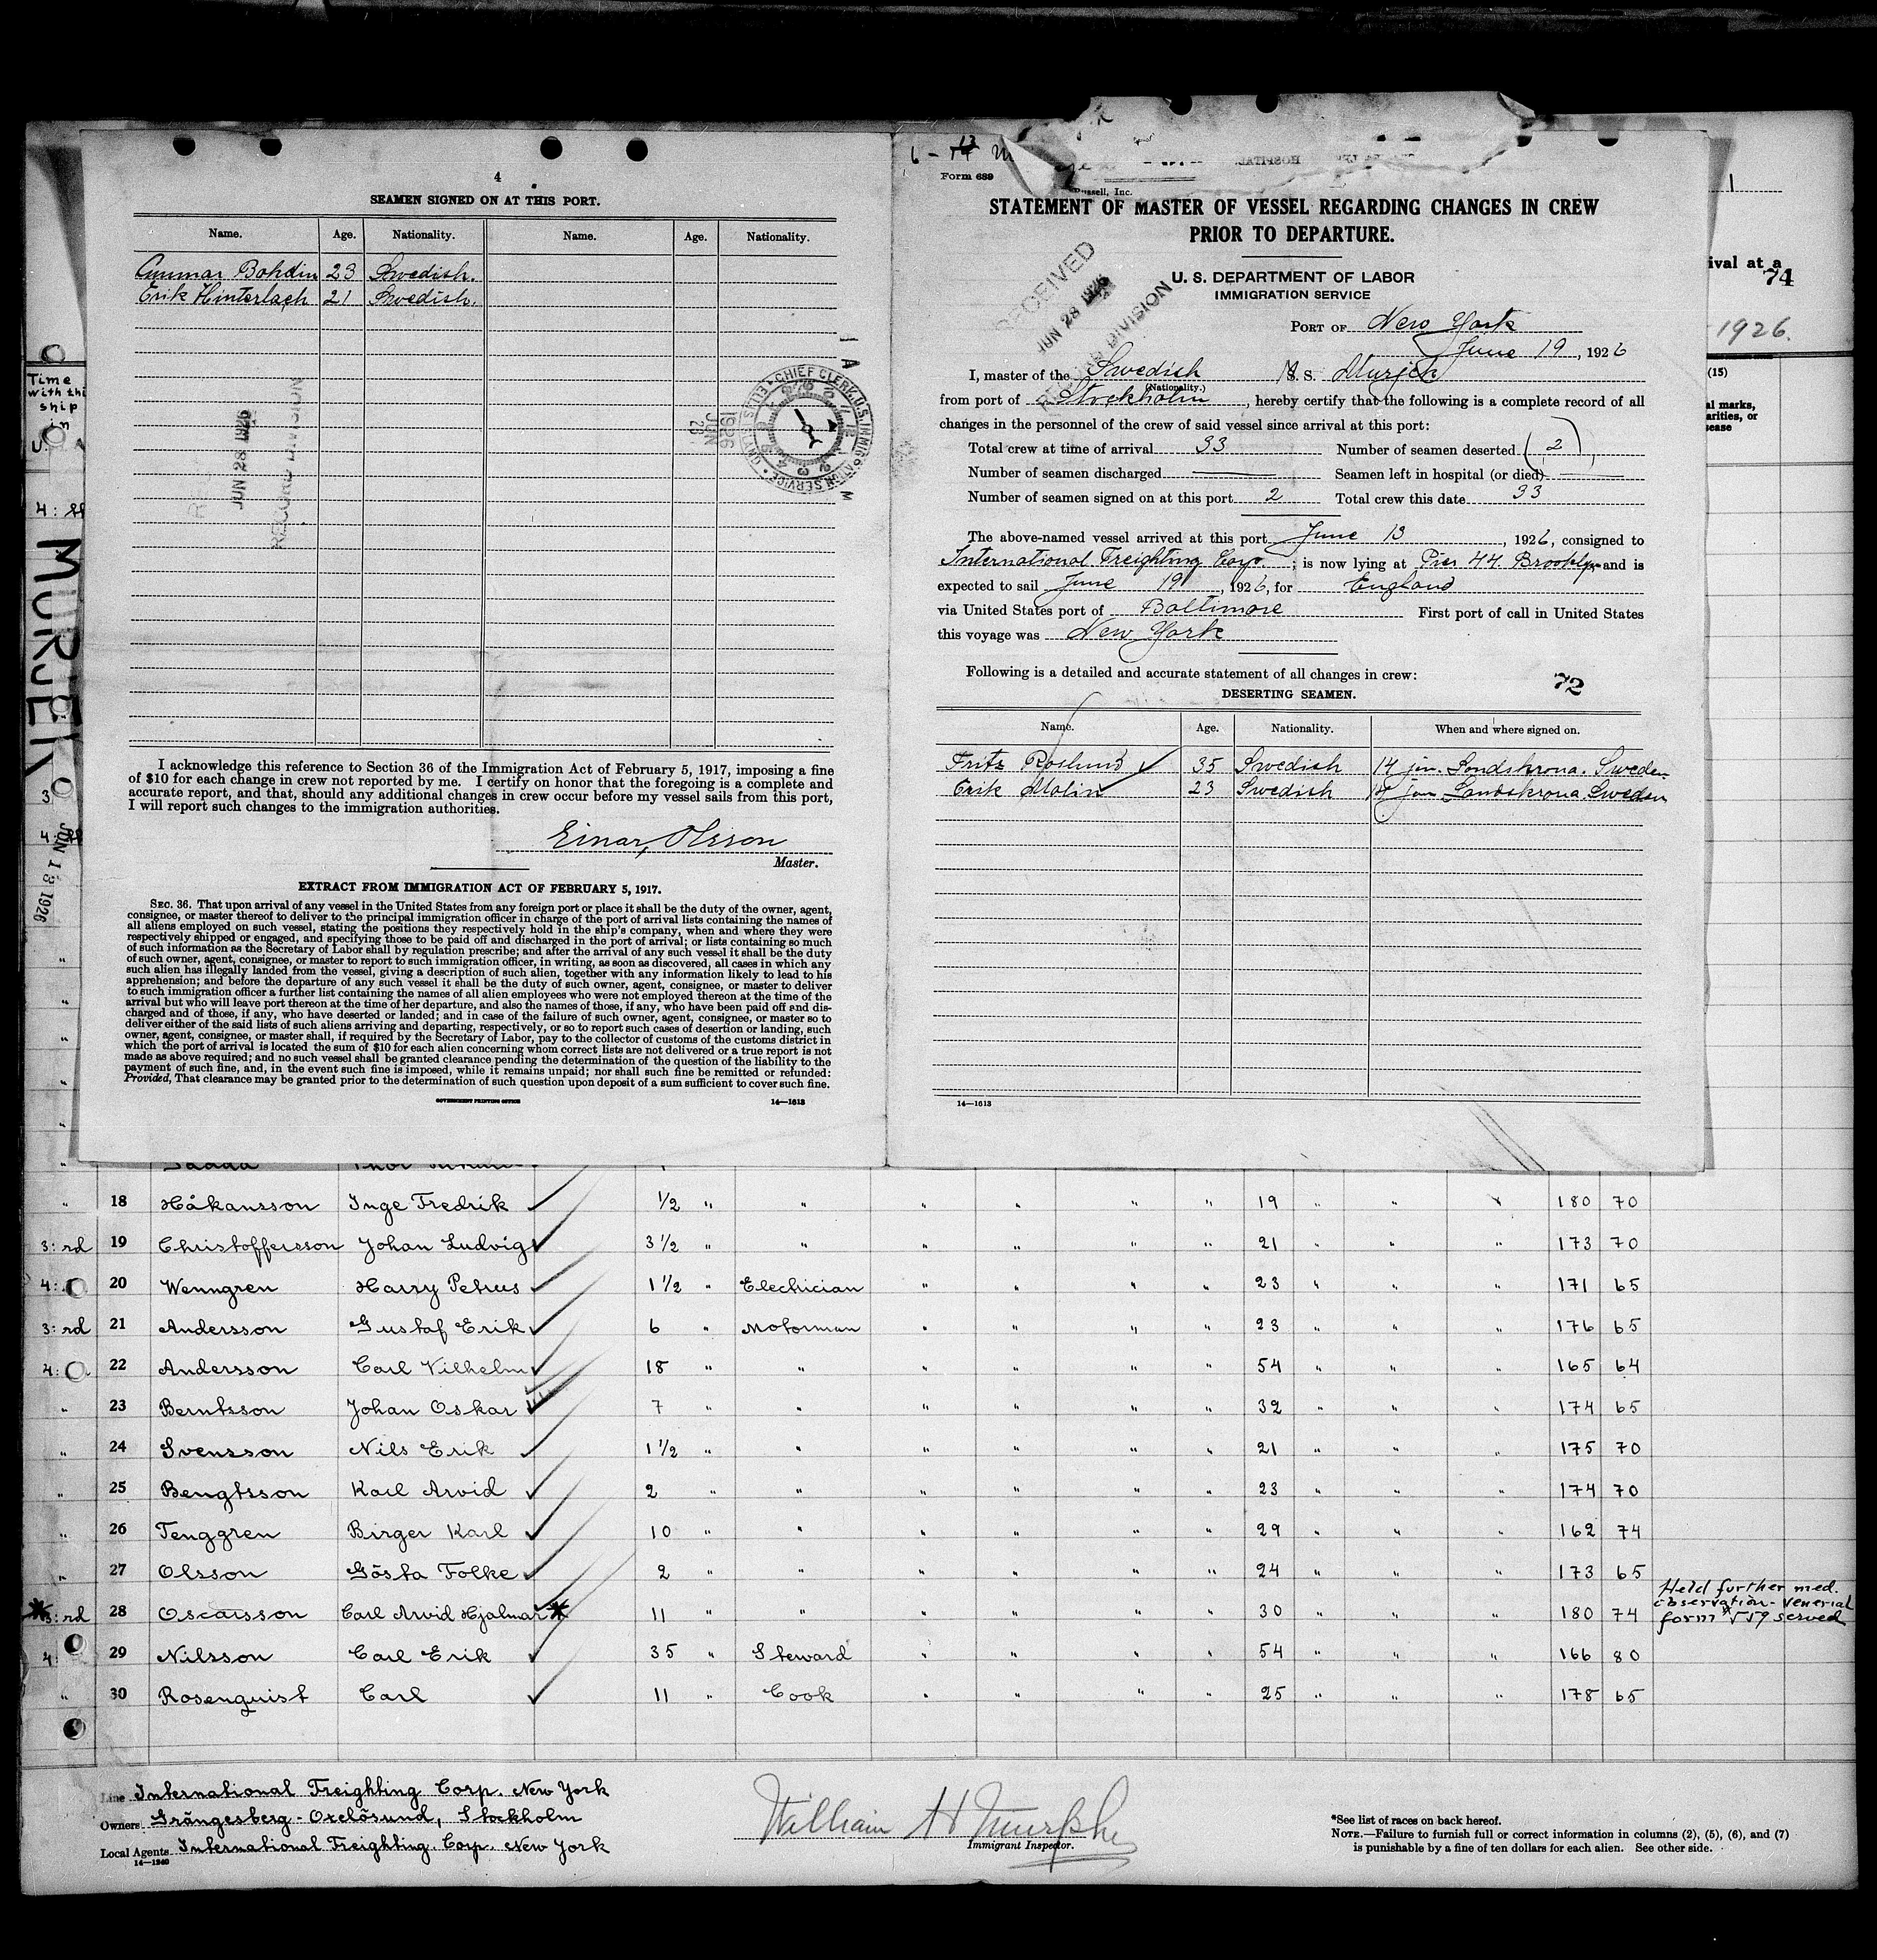 4
SEAMEN SIGNED ON AT THIS PORT.
Name. Age. Nationality. Name. Age. Nationality.
Gunnar Bohdin 23 Swedish.
Erik Hinterlach 21 Swedish.
JUN 28 1926
RECORD DIVISION
CHIEF CLERK, U.S. IMMIGRATION SERVICE
1926 JUN 28
I acknowledge this reference to Section 36 of the Immigration Act of February 5, 1917, imposing a fine
of $10 for each change in crew not reported by me. I certify on honor that the foregoing is a complete and
accurate report, and that, should any additional changes in crew occur before my vessel sails from this port,
I will report such changes to the immigration authorities.
Einar Olsson
Master.
EXTRACT FROM IMMIGRATION ACT OF FEBRUARY 5, 1917.
SEC. 36. That upon arrival of any vessel in the United States from any foreign port or place it shall be the duty of the owner, agent,
consignee, or master thereof to deliver to the principal immigration officer in charge of the port of arrival lists containing the names of
all aliens employed on such vessel, stating the positions they respectively hold in the ship's company, when and where they were
respectively shipped or engaged, and specifying those to be paid off and discharged in the port of arrival; or lists containing so much
of such information as the Secretary of Labor shall by regulation prescribe; and after the arrival of any such vessel it shall be the duty
of such owner, agent, consignee, or master to report to such immigration officer, in writing, as soon as discovered, all cases in which any
such alien has illegally landed from the vessel, giving a description of such alien, together with any information likely to lead to his
apprehension; and before the departure of any such vessel it shall be the duty of such owner, agent, consignee, or master to deliver
to such immigration officer a further list containing the names of all alien employees who were not employed thereon at the time of the
arrival but who will leave port thereon at the time of her departure, and also the names of those, if any, who have been paid off and dis-
charged and of those, if any, who have deserted or landed; and in case of the failure of such owner, agent, consignee, or master so to
deliver either of the said lists of such aliens arriving and departing, respectively, or so to report such cases of desertion or landing, such
owner, agent, consignee, or master shall, if required by the Secretary of Labor, pay to the collector of customs of the customs district in
which the port of arrival is located the sum of $10 for each alien concerning whom correct lists are not delivered or a true report is not
made as above required; and no such vessel shall be granted clearance pending the determination of the question of the liability to the
payment of such fine, and, in the event such fine is imposed, while it remains unpaid; nor shall such fine be remitted or refunded:
Provided, That clearance may be granted prior to the determination of such question upon deposit of a sum sufficient to cover such fine.
GOVERNMENT PRINTING OFFICE 14—1613
Form 689
Russell, Inc.
HOSPITAL
STATEMENT OF MASTER OF VESSEL REGARDING CHANGES IN CREW
PRIOR TO DEPARTURE.
JUN 28 1926
DIVISION
U. S. DEPARTMENT OF LABOR
IMMIGRATION SERVICE
PORT OF New York
June 19, 1926
I, master of the Swedish M. S. Murjek
(Nationality.)
from port of Stockholm, hereby certify that the following is a complete record of all
changes in the personnel of the crew of said vessel since arrival at this port:
Total crew at time of arrival 33 Number of seamen deserted (2)
Number of seamen discharged Seamen left in hospital (or died)
Number of seamen signed on at this port 2 Total crew this date 33
The above-named vessel arrived at this port June 13, 1926, consigned to
International Freighting Corp.; is now lying at Pier 44 Brooklyn and is
expected to sail June 19, 1926, for England
via United States port of Baltimore First port of call in United States
this voyage was New York
Following is a detailed and accurate statement of all changes in crew:
72
DESERTING SEAMEN.
Name. Age. Nationality. When and where signed on.
Fritz Roslund 35 Swedish 14 jan. Landskrona. Sweden
Erik Molin 23 Swedish 14 jan Landskrona Sweden
14—1613
ival at a
74
1926.
(15)
al marks,
arities, or
sease
Time
with this
ship
in
MURJEK
JUN 13 1926
" 18 Håkansson Inge Fredrik 1/2 " " " " " " 19 " " " 180 70
3:rd 19 Christoffersson Johan Ludvig 3 1/2 " " " " " " 21 " " " 173 70
4: 20 Wenngren Harry Petrus 1 1/2 " Electrician " " " " 23 " " " 171 65
3:rd 21 Andersson Gustaf Erik 6 " Motorman " " " " 23 " " " 176 65
4: 22 Andersson Carl Vilhelm 18 " " " " " " 54 " " " 165 64
" 23 Berntsson Johan Oskar 7 " " " " " " 32 " " " 174 65
" 24 Svensson Nils Erik 1 1/2 " " " " " " 21 " " " 175 70
" 25 Bengtsson Karl Arvid 2 " " " " " " 23 " " " 174 70
" 26 Tenggren Birger Karl 10 " " " " " " 29 " " " 162 74
" 27 Olsson Gösta Folke 2 " " " " " " 24 " " " 173 65
3:rd 28 Oscarsson Carl Arvid Hjalmar 11 " " " " " " 30 " " " 180 74
Held further med.
observation - venerial
form #559 served
4: 29 Nilsson Carl Erik 35 " Steward " " " " 54 " " " 166 80
" 30 Rosenquist Carl 11 " Cook " " " " 25 " " " 178 65
Line International Freighting Corp. New York
Owners Grängesberg - Oxelösund, Stockholm
Local Agents International Freighting Corp. New York
14—1240
William H Murphy
Immigrant Inspector.
*See list of races on back hereof.
NOTE.—Failure to furnish full or correct information in columns (2), (5), (6), and (7)
is punishable by a fine of ten dollars for each alien. See other side.